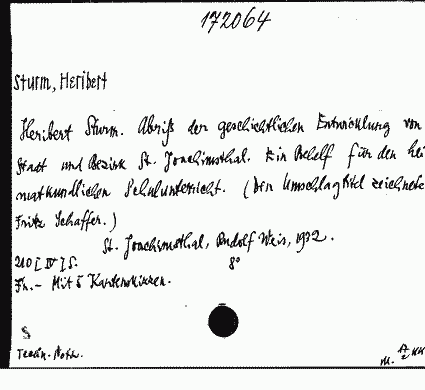 172064
Sturm, Heribert
Heribert Sturm. Abriß der geschichtlichen Entwicklung von
Stadt und Bezirk St. Joachimsthal. Ein Behelf für den hei
matkundlichen Schulunterricht. (Den Umschlagtitel zeichnete
Fritz Schaffer.)
St. Joachimsthal, Rudolf Weis, 1932.
210 [IV] S. 8°
Fr. - Mit 5 Kartenskizzen.